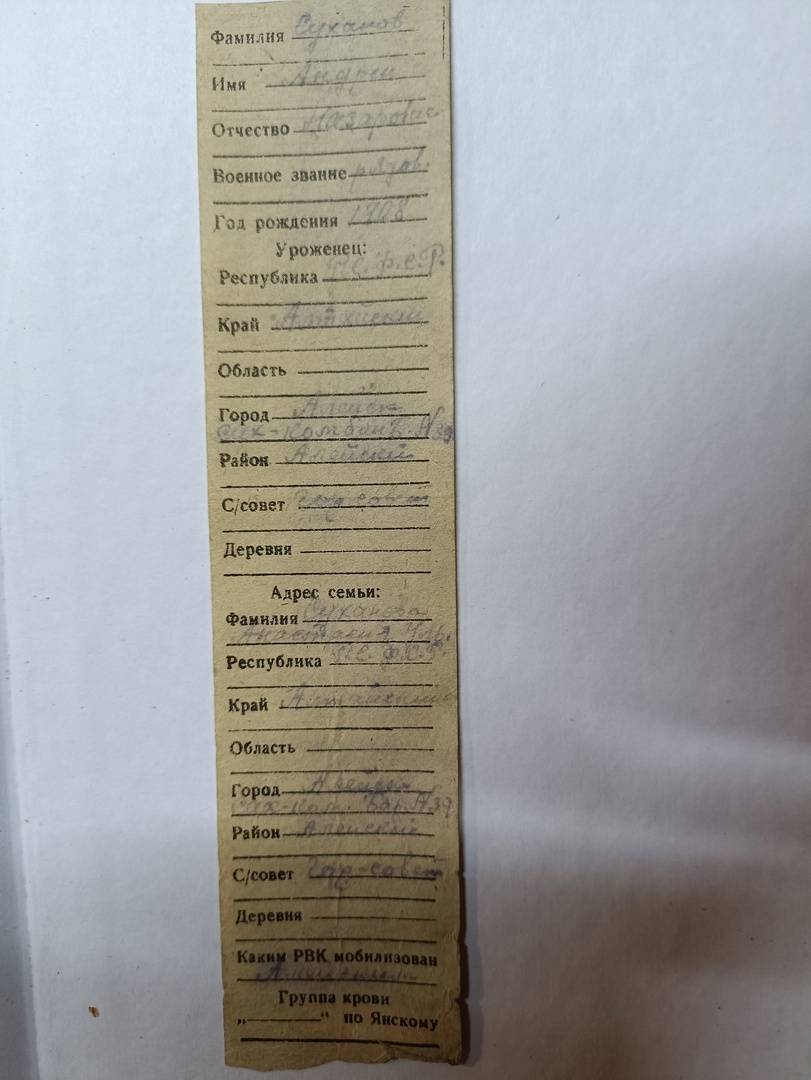 Фамилия Суханов
Имя Андрей
Отчество Назарович
Военное звание рядов.
Год рождения 1908
Уроженец:
Республика Р.С.Ф.С.Р.
Край Алтайский
Область
Город Алейск
сах-комбин Б. №39
Район Алейский
С/совет Гор совет
Деревня
Адрес семьи:
Фамилия Суханова
Анастасия Иль.
Республика Р.С.Ф.С.Р.
Край Алтайский
Область
Город Алейск
сах-ком. Бар. №39
Район Алейский
С/совет Гор-совет
Деревня
Каким РВК мобилизован
Алейским
Группа крови
„ “ по Янскому